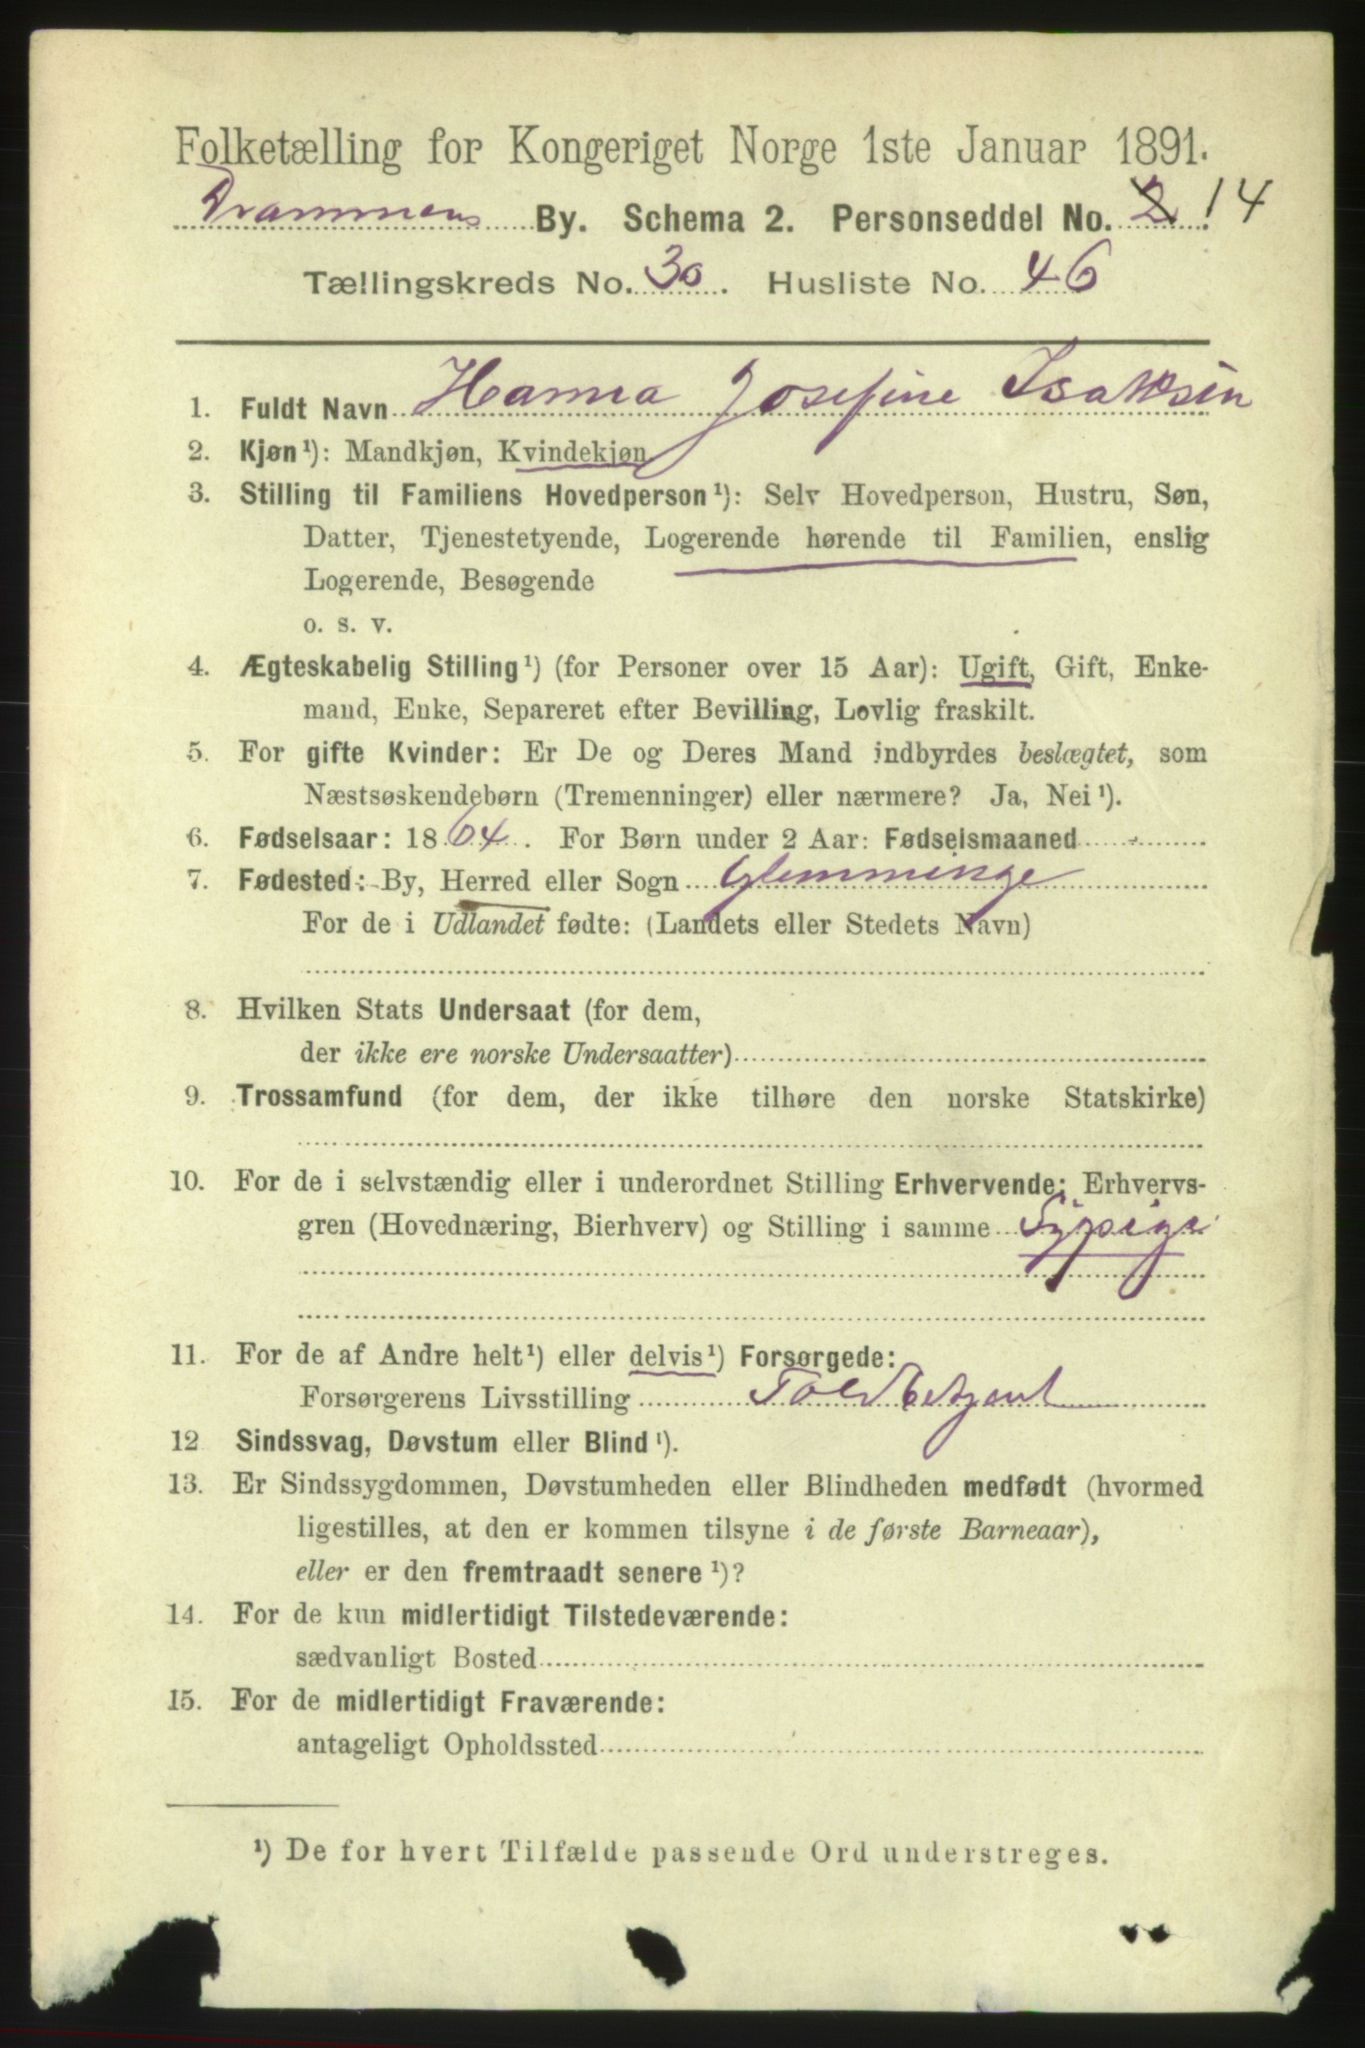 Folketælling for Kongeriget Norge 1ste Januar 1891.
Drammens By. Schema 2. Personseddel No. 2 14
Tællingskreds No. 30. Husliste No. 46
1. Fuldt Navn Hanna Josefine Isaksen
2. Kjøn¹): Mandkjøn, Kvindekjøn.
3. Stilling til Familiens Hovedperson¹): Selv Hovedperson, Hustru, Søn,
Datter, Tjenestetyende, Logerende hørende til Familien, enslig
Logerende, Besøgende
o. s. v.
4. Ægteskabelig Stilling¹) (for Personer over 15 Aar): Ugift, Gift, Enke-
mand, Enke, Separeret efter Bevilling, Lovlig fraskilt.
5. For gifte Kvinder: Er De og Deres Mand indbyrdes beslægtet, som
Næstsøskendebørn (Tremenninger) eller nærmere? Ja, Nei¹).
6. Fødselsaar: 1864. For Børn under 2 Aar: Fødselsmaaned
7. Fødested: By, Herred eller Sogn Glemminge
For de i Udlandet fødte: (Landets eller Stedets Navn)
8. Hvilken Stats Undersaat (for dem,
der ikke ere norske Undersaatter)
9. Trossamfund (for dem, der ikke tilhøre den norske Statskirke)
10. For de i selvstændig eller i underordnet Stilling Erhvervende: Erhvervs-
gren (Hovednæring, Bierhverv) og Stilling i samme Sypige
11. For de af Andre helt¹) eller delvis¹) Forsørgede:
Forsørgerens Livsstilling Toldbetjent
12 Sindssvag, Døvstum eller Blind¹).
13. Er Sindssygdommen, Døvstumheden eller Blindheden medfødt (hvormed
ligestilles, at den er kommen tilsyne i de første Barneaar),
eller er den fremtraadt senere¹)?
14. For de kun midlertidigt Tilstedeværende:
sædvanligt Bosted
15. For de midlertidigt Fraværende:
antageligt Opholdssted
¹) De for hvert Tilfælde passende Ord understreges.